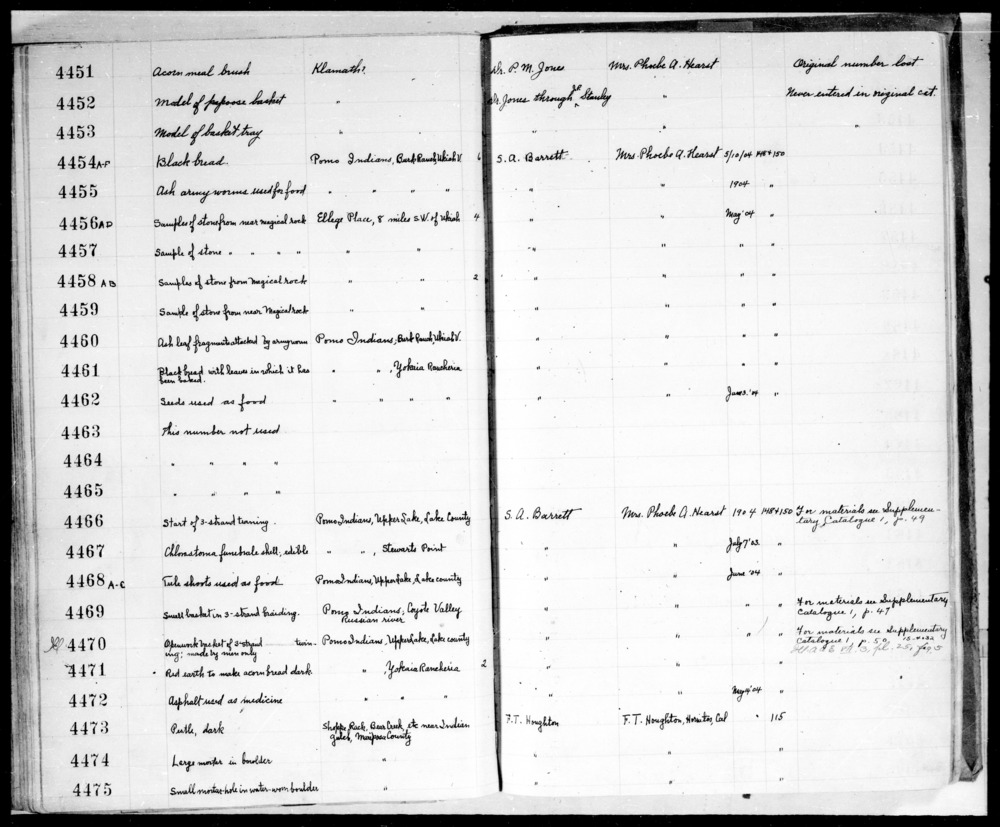 4451 Acorn meal brush Klamath? Dr. P. M. Jones Mrs. Phoebe A. Hearst Original number lost
4452 Model of papoose basket " Dr. Jones through Stanley " Never entered in original cat.
4453 Model of basket tray " " " "
4454 A-F Black bread. Pomo Indians, Ukiah V. 6 S. A. Barrett Mrs. Phoebe A. Hearst 5/10/04 148+150
4455 Ash army worms used for food " " " " " " 1904 "
4456 A D Samples of stone from near magical rock Ellege Place, 8 miles S.W. of Ukiah 4 " " May '04 "
4457 Sample of stone " " " " " " " " " "
4458 A B Samples of stone from Magical rock " " 2 " " " "
4459 Sample of stone from near Magical rock " " " " " "
4460 Ash leaf fragments attacked by army worm Pomo Indians, Ukiah V. " " " "
4461 Black bread with leaves in which it has been baked. " " , Yokaia Rancheria " " " "
4462 Seeds used as food " " " " " " June 3. '04 "
4463 This number not used
4464 " " " "
4465 " " " "
4466 Start of 3-strand twining. Pomo Indians, Upper Lake, Lake County S. A. Barrett Mrs. Phoebe A. Hearst 1904 148+150 For materials see Supplemen-
tary Catalogue 1, p. 49
4467 Chlorostoma funebrale shell, edible " " , Stewarts Point " " July 7 '03. "
4468 A-C Tule shoots used as food Pomo Indians, Upper Lake, Lake county " " June '04 "
4469 Small basket in 3-strand braiding. Pomo Indians, Coyote Valley " " " " For materials see Supplementary
Russian river Catalogue 1, p. 47
4470 Openwork basket of 3-strand twin- Pomo Indians, Upper Lake, Lake county " " " For materials see Supplementary
ing; made by men only Catalogue 1, p. 50,
4471 Red earth to make acorn bread dark " Yokaia Rancheria 2 " " " "
4472 Asphalt used as medicine " " " " " May 4 '04 "
4473 Pestle, dark Bear Creek, etc near Indian F. T. Houghton F. T. Houghton, Hornitos, Cal " 115
Gulch, Mariposa County
4474 Large mortar in boulder " " " "
4475 Small mortar-hole in water-worn boulder " " " "